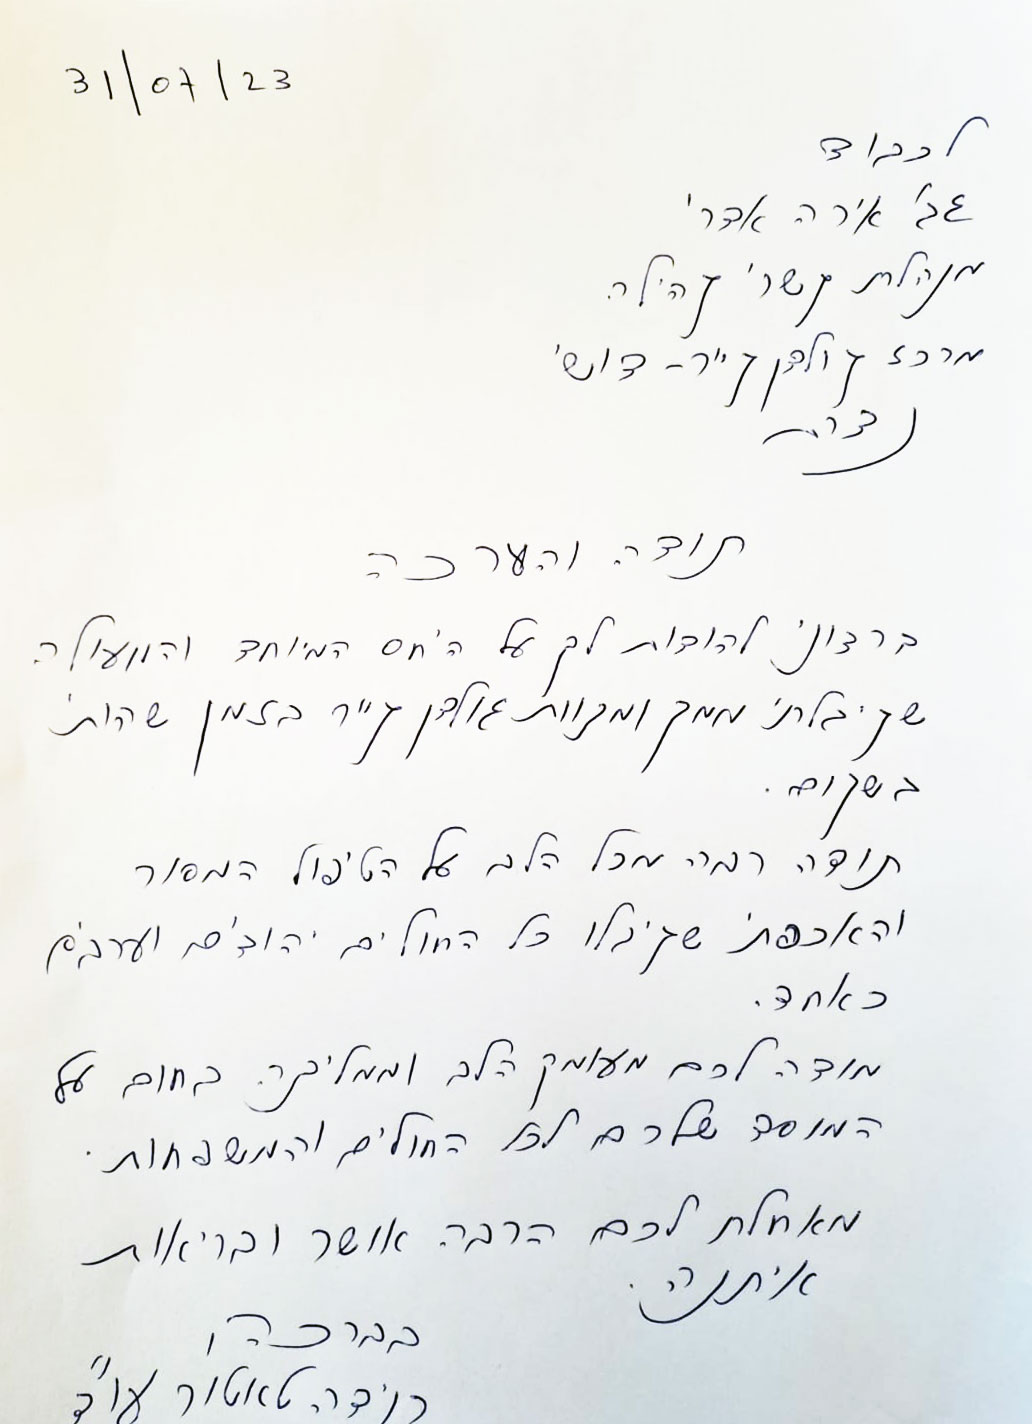 31/07/23
לכבוד
גב' אירה אדרי
מנהלת קשרי קהילה
מרכז גולדן קייר - דושי
נצרת
תודה והערכה
ברצוני להודות לך על היחס המיוחד והמעולה
שקיבלתי ממך ומצוות גולדן קייר בזמן שהותי
בשקום.
תודה רבה מכל הלב על הטיפול המסור
והאכפתי שקיבלו כל החולים יהודים וערבים
כאחד.
מודה לכם מעומק הלב וממליצה בחום על
המוסד שלכם לכל החולים והמשפחות.
מאחלת לכם הרבה אושר ובריאות
איתנה.
בברכה,
טאטור עו"ד